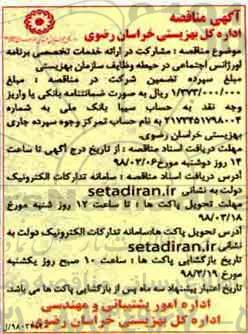 آگهی مناقصه
اداره کل بهزیستی خراسان رضوی
موضوع مناقصه : مشارکت در ارائه خدمات تخصصی برنامه
اورژانس اجتماعی در حیطه وظایف سازمان بهزیستی
مبلغ سپرده تضمین شرکت در مناقصه : مبلغ
۱/۳۷۳/۰۰۰/۰۰۰ ریال به صورت ضمانتنامه بانکی یا واریز
وجه نقد به حساب سیبا بانک ملی به شماره
۲۱۷۳۴۵۱۷۹۸۰۰۴ به نام حساب تمرکز وجوه سپرده جاری
بهزیستی خراسان رضوی.
مهلت دریافت اسناد مناقصه : از تاریخ درج آگهی تا ساعت
۱۴ روز دوشنبه مورخ ۹۸/۰۳/۰۶
آدرس دریافت اسناد مناقصه : سامانه تدارکات الکترونیک
دولت به نشانی setadiran.ir
مهلت تحویل پاکت ها : تا ساعت ۱۲ روز شنبه مورخ
۹۸/۰۳/۱۸
آدرس تحویل پاکت ها:سامانه تدارکات الکترونیک دولت به
نشانی setadiran.ir
تاریخ بازگشایی پاکت ها : ساعت ۱۰ صبح روز یکشنبه
مورخ ۹۸/۳/۱۹
تاریخ اعتبار پیشنهاد سه ماه پس از بازگشایی پاکت ها می باشد.
اداره امور پشتیبانی و مهندسی
اداره کل بهزیستی خراسان رضوی